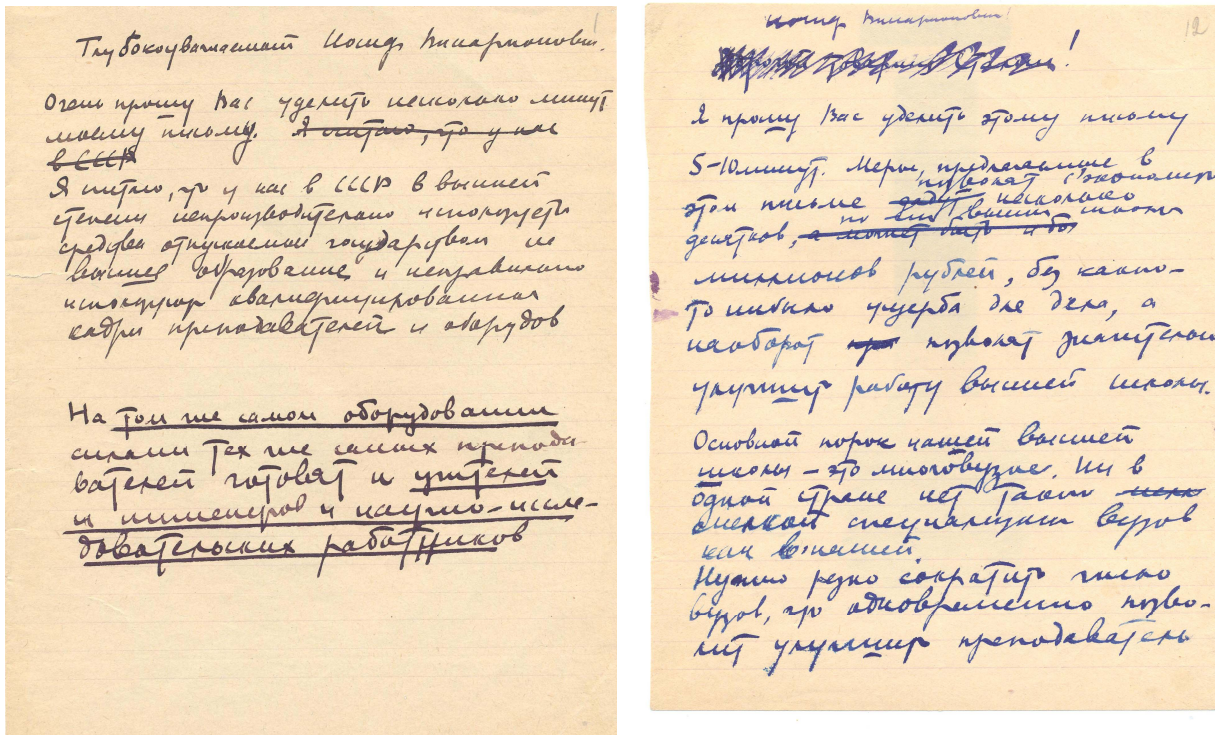 1
Глубокоуважаемый Иосиф Виссарионович.
Очень прошу Вас уделить несколько минут
моему письму. Я считаю, что у нас
в СССР
Я считаю, что у нас в СССР в высшей
степени непроизводительно используются
средства отпускаемые государством на
высшее образование и неправильно
используются квалифицированные
кадры преподавателей и оборудов
На том же самом оборудовании
силами тех же самых препода-
вателей готовят и учителей
и инженеров и научно-иссле-
довательских работников
12
Иосиф Виссарионович!
товарищ Сталин!
Я прошу Вас уделить этому письму
5-10 минут. Меры, предлагаемые в
позволят сэкономить
этом письме дадут несколько
по высшей школы
десятков, а может быть и бо
миллионов рублей, без какого-
то нибыло ущерба для дела, а
наоборот позволят значительно
улучшить работу высшей школы.
Основной порок нашей высшей
школы – это многовузие. Ни в
одной стране нет такой мелк
мелкой специализации вузов
как в нашей.
Нужно резко сократить число
вузов, что одновременно позво-
лит улучшить преподаватель